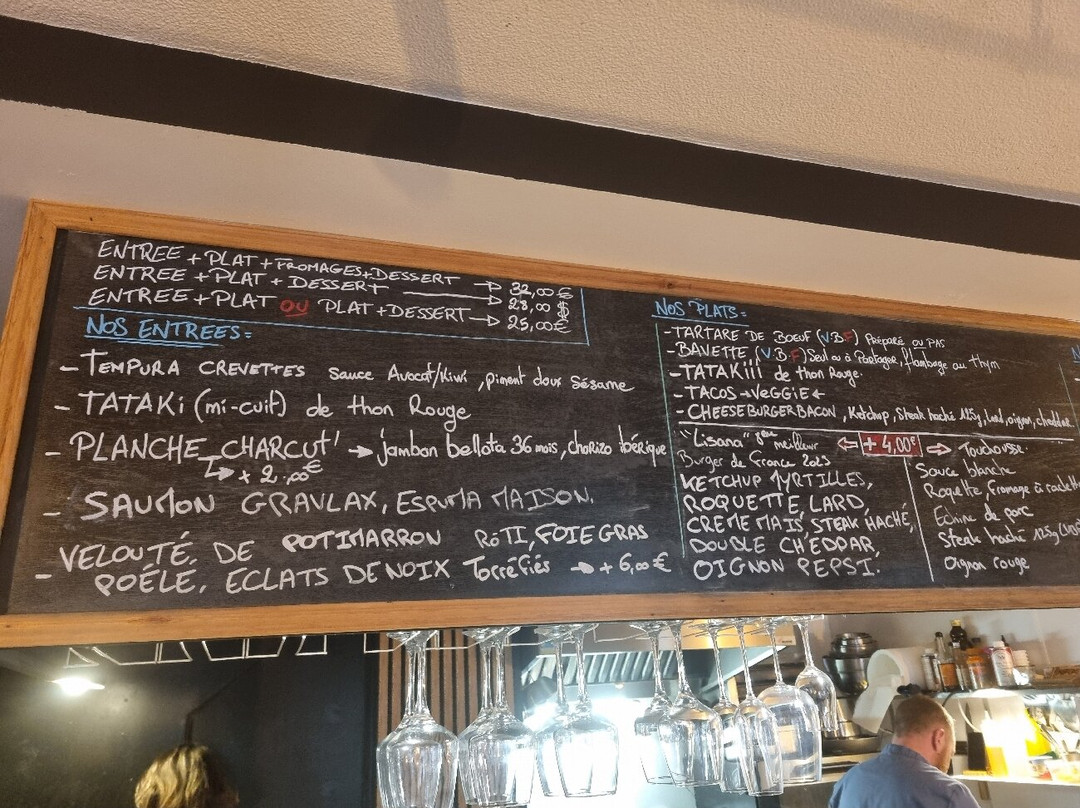 ENTREE + PLAT + FROMAGES + DESSERT → 32,00 €
ENTREE + PLAT + DESSERT → 28,00 $
ENTREE + PLAT OU PLAT + DESSERT → 25,00 €
NOS ENTREES =
- TEMPURA CREVETTES sauce Avocat/Kiwi, piment doux Sésame
- TATAKi (mi-cuit) de thon Rouge
- PLANCHE CHARCUT' → jambon bellota 36 mois, chorizo ibérique
↳ + 2,00€
- SAUMON GRAVLAX, ESPUMA MAISON.
- VELOUTÉ DE POTIMARRON RÔTI, FOIE GRAS
POÊLÉ, ECLATS DE NOIX Torréfiés → + 6,00 €
NOS PLATS =
- TARTARE DE BOEUF (V.B.F) Préparé ou PAS
- BAVETTE (V.B.F) Seul ou à Partager, flambage au thym
- TATAKiii de thon Rouge.
- TACOS → VEGGiE ←
- CHEESEBURGER BACON, Ketchup, Steak haché 125g, lard, oignon, cheddar
"Lisana" 8ème meilleur ⇐ + 4,00€ ⇒
Burger de France 2023
KETCHUP MYRTILLES,
ROQUETTE, LARD,
CREME MAIS, STEAK HACHÉ,
DOUBLE CHEDDAR,
OIGNON PEPSI.
Touchousse.
Sauce blanche
Roquette, fromage à raclette
Echine de porc
Steak haché 125g
Oignon rouge